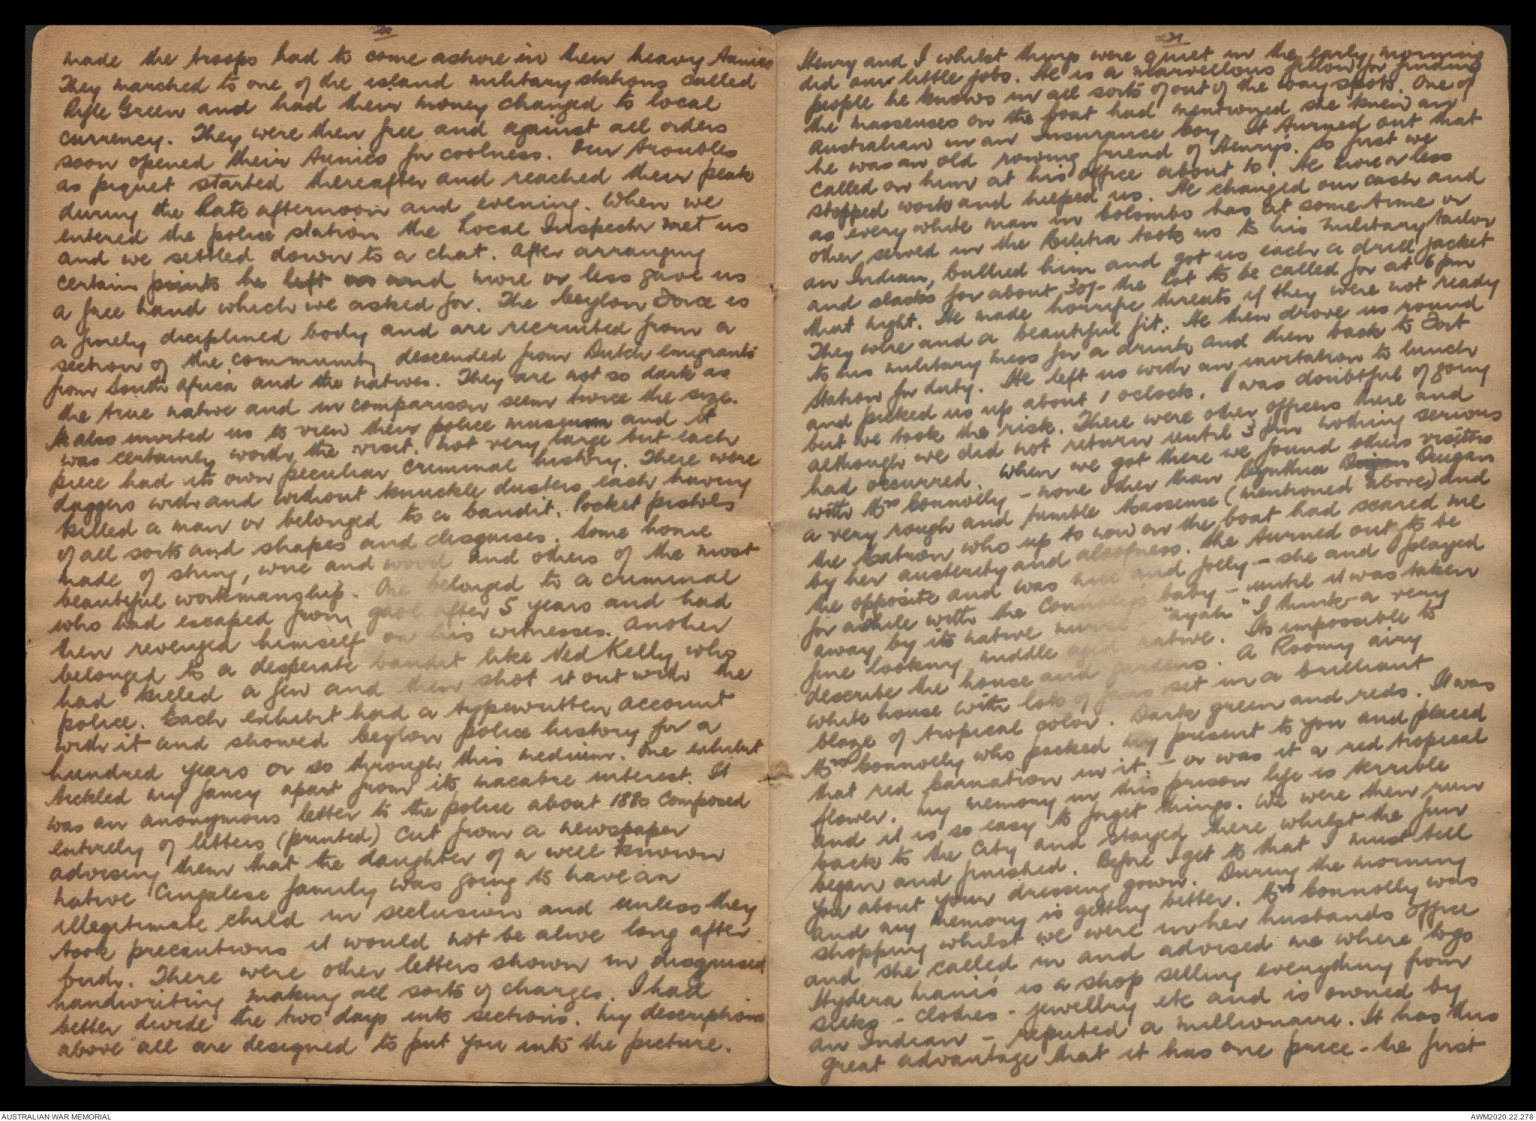 made the troops had to come ashore in their heavy Tunics
They marched to one of the island military stations called
Rifle Green and had their money changed to local
currency. They were then free and against all orders
soon opened their Tunics for coolness. Our troubles
as piquet started thereafter and reached their peak
during the late afternoon and evening. When we
entered the police station the Local Inspector met us
and we settled down to a chat. After arranging
certain points he left us and more or less gave us
a free hand which we asked for. The Ceylon Force is
a finely disciplined body and are recruited from a
section of the community descended from Dutch emigrants
from South Africa and the natives. They are not so dark as
the true native and in comparison seem twice the size.
He also invited us to view their police museum and it
was certainly worth the visit. Not very large but each
piece had its own peculiar criminal history. There were
daggers with and without knuckle dusters each having
killed a man or belonged to a bandit. Pocket pistols
of all sorts and shapes and disguises. Some home
made of string, wire and wood and others of the most
beautiful workmanship. One belonged to a criminal
who had escaped from gaol after 5 years and had
then revenged himself on his witnesses. Another
belonged to a desperate bandit like Ned Kelly who
had killed a few and then shot it out with the
police. Each exhibit had a typewritten account
with it and showed Ceylon police history for a
hundred years or so through this medium. One exhibit
tickled my fancy apart from its macabre interest. It
was an anonymous letter to the police about 1880 composed
entirely of letters (printed) cut from a newspaper
advising them that the daughter of a well known
native Cingalese family was going to have an
illegitimate child in seclusion and unless they
took precautions it would not be alive long after
birth. There were other letters shown in disguised
handwriting making all sorts of charges. I had
better divide the two days into sections. My descriptions
above all are designed to put you into the picture.
Henry and I whilst things were quiet in the early morning
did our little jobs. He is a marvellous fellow for finding
people he knows in all sorts of out of the way spots. One of
the masseuses on the boat had mentioned she knew an
Australian in an Insurance Coy. It turned out that
he was an old rowing friend of Henrys. So just we
called on him at his office about 10. He more or less
stopped work and helped us. He changed our cash and
as every white man in Colombo has at some time or
other served in the Militia took us to his military tailor
an Indian, bullied him and got us each a drill jacket
and slacks for about 30/- the lot to be called for at 6 pm
that night. He made horrific threats if they were not ready
They were and a beautiful fit. He then drove us round
to his military mess for a drink and then back to Fort
Station for duty. He left us with an invitation to lunch
and picked us up about 1 oclock. I was doubtful of going
but we took the risk. There were other officers there and
although we did not return until 3 pm nothing serious
had occurred. When we got there we found others visitors
with Mrs Connolly - none other than Cynthia Duigan
a very rough and fumble Masseuse (mentioned above) and
the Matron who up to now on the boat had scared me
by her austerity and aloofness. She turned out to be
the opposite and was nice and jolly - she and I played
for awhile with the Connollys baby - until it was taken
away by its native nurse "ayah" I think - a very
fine looking middle aged native. Its impossible to
describe the house and gardens. A Roomy airy
white house with lots of fans set in a brilliant
blaze of tropical color. Dark green and reds. It was
Mrs Connolly who packed my present to you and placed
that red carnation in it. - or was it a red tropical
flower. My memory in this prison life is terrible
and it is so easy to forget things. We were then run
back to the City and stayed there whilst the fun
began and finished. Before I get to that I must tell
you about your dressing gown. During the morning
and my memory is getting better. Mrs Connolly was
shopping whilst we were in her husbands office
and she called in and advised me where to go
Hydera hanis is a shop selling everything from
silks - clothes - jewellry etc and is owned by
an Indian - reputed a millionaire. It has this
great advantage that it has one price - the first
AUSTRALIAN WAR MEMORIAL
AWM2020.22.278